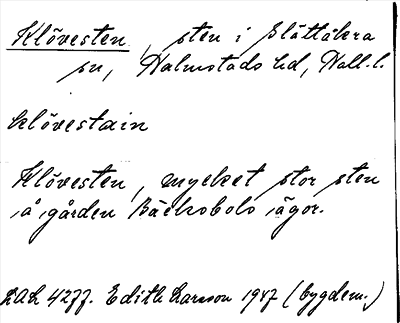 Klövesten, sten i Slättåkra
sn, Halmstads hd, Hall. l.
klövestain
Klövesten, mycket stor sten
å gården Bäcksbols ägor.
LAL 4277. Edith Larsson 1947 (bygdem.)